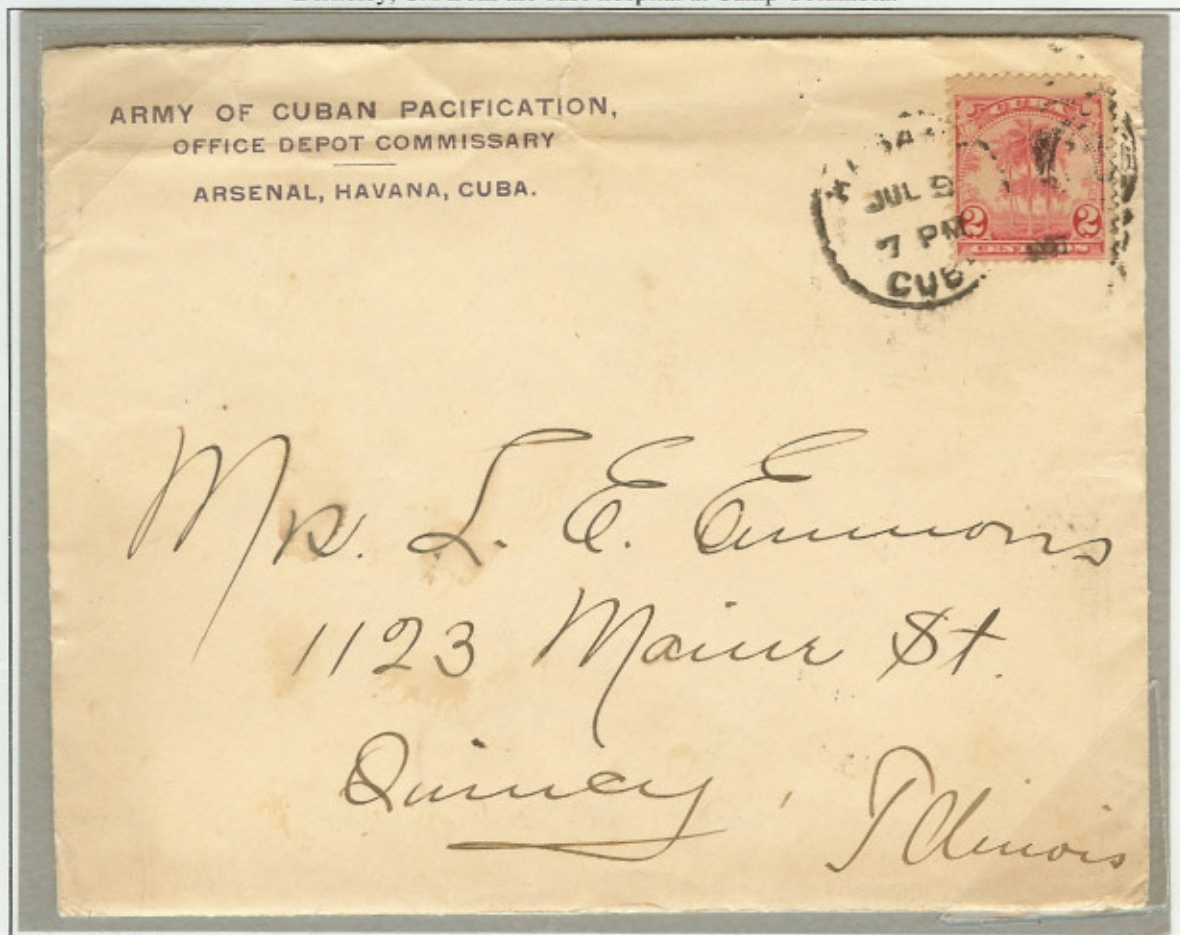 ARMY OF CUBAN PACIFICATION,
OFFICE DEPOT COMMISSARY
ARSENAL, HAVANA, CUBA.
JUL 9
7 PM
CUBA
2 2
CENTAVOS
Mrs. L. E. Emmons
1123 Maine St.
Quincy, Illinois